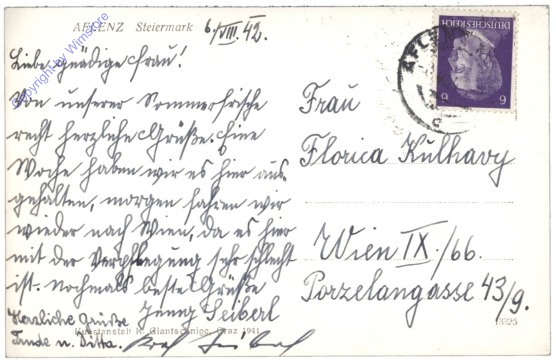 AFLENZ Steiermark 6./VIII. 42.
Liebe gnädige Frau!
Von unserer Sommerfrische
recht herzliche Grüße. Eine
Woche haben wir es hier aus-
gehalten, morgen fahren wir
wieder nach Wien, da es hier
mit der Verpflegung sehr schlecht
ist. Nochmals beste Grüße
Jenny Seiberl
Herzliche Grüße
Trude u. Ditta.
Kunstanstalt R. Glantschnigg, Graz 1941
Copyright by Wimstore
DEUTSCHES REICH
6
AFLENZ
Frau
Florica Kulhavy
Wien IX/66.
Porzelangasse 43/9.
13325